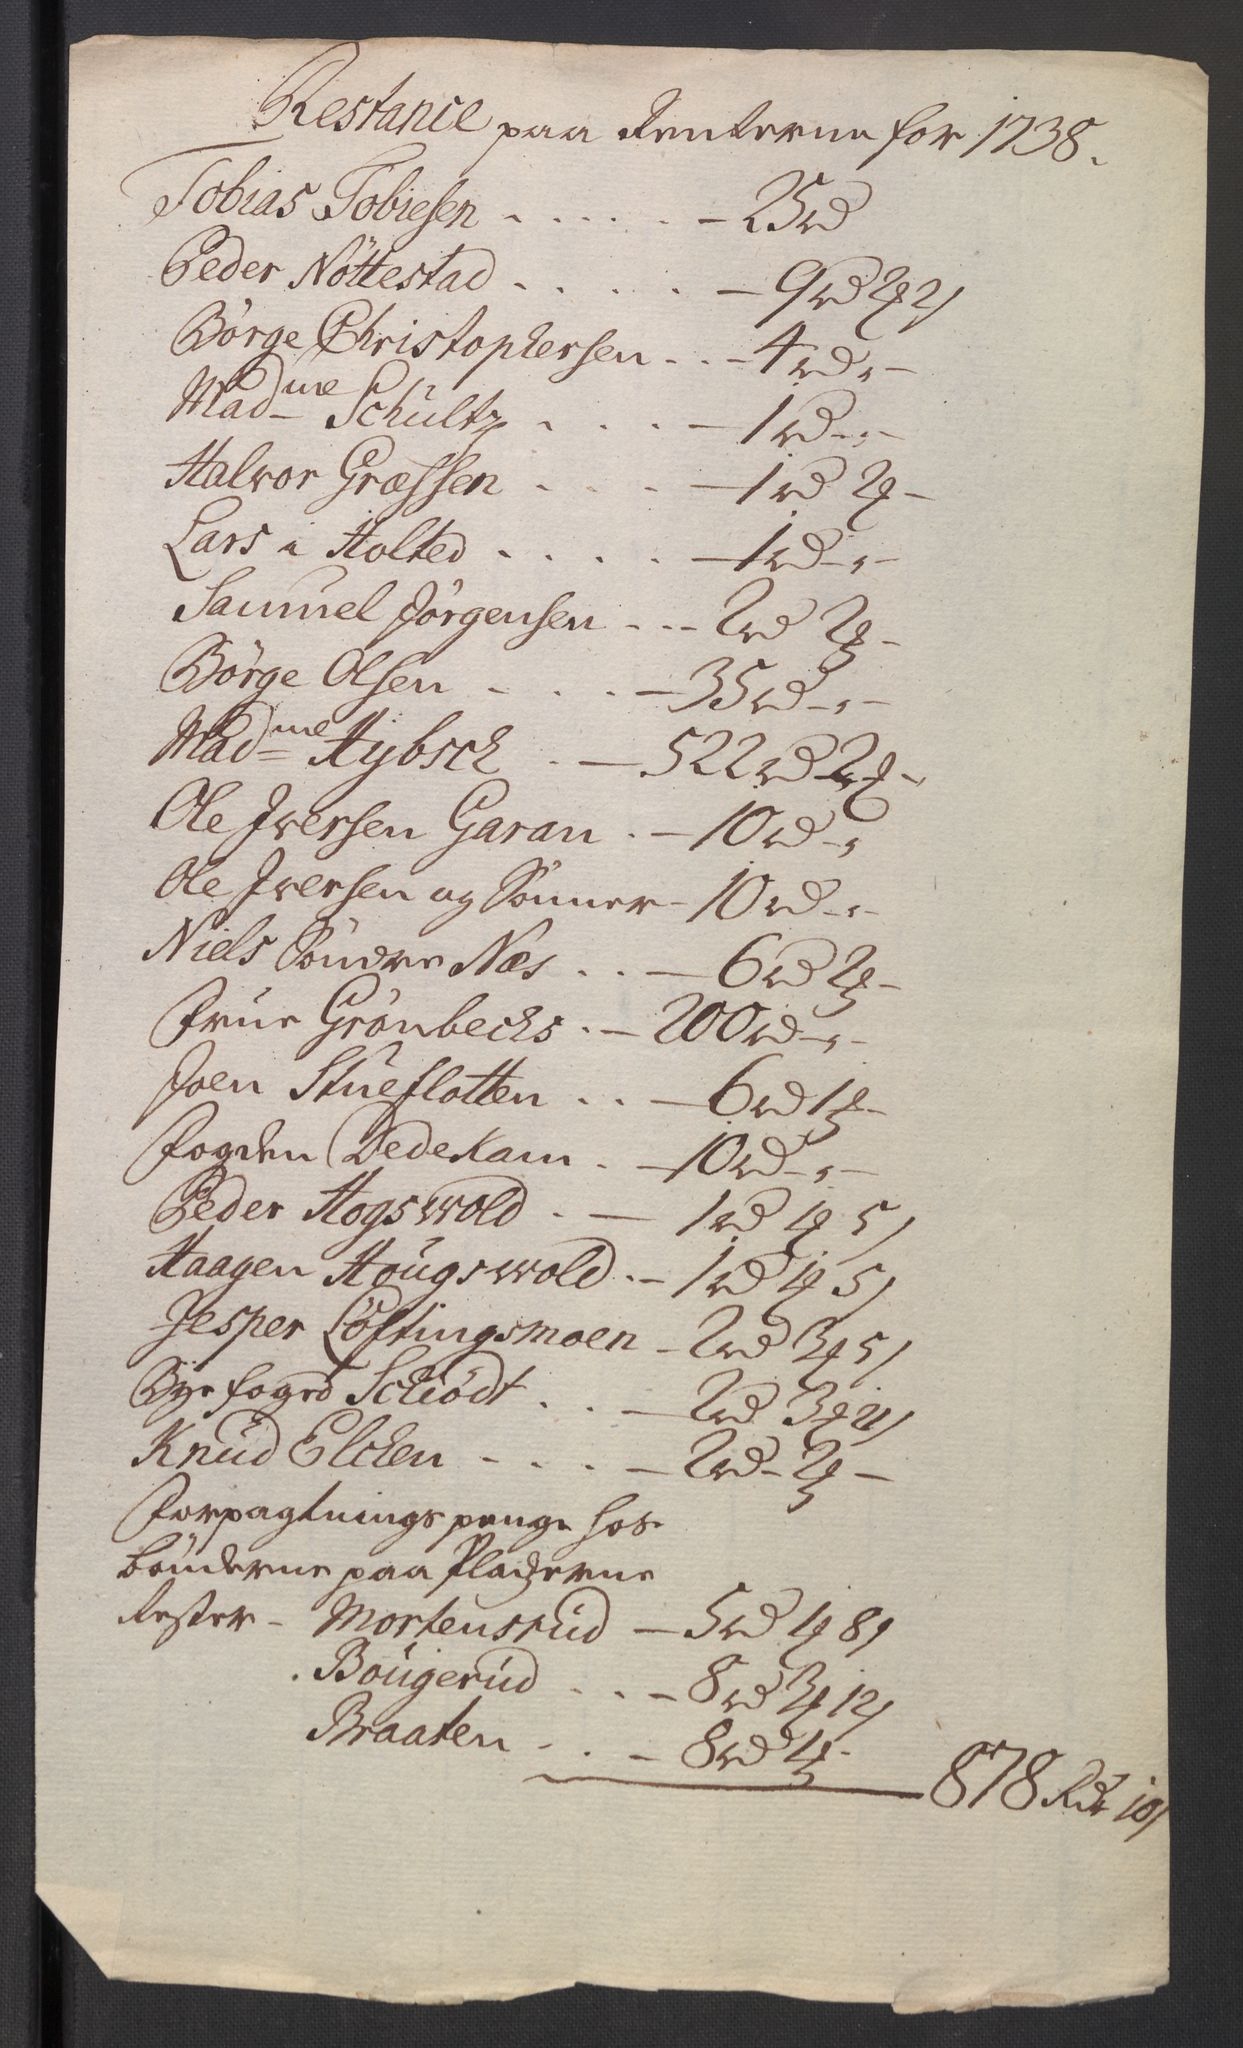 Restance paa Renterne for 1738.
Tobias Tobiesen . . . . . - 25 rd
Peder Nöttestad . . . . . - 9 rd 2 ₰ 2 s
Börge Christophersen . . - 4 rd „ -
Mad<sup>me</sup> Schültz . . . . - 1 rd - „ -
Halvor Græssen . . . . - 1 rd 2 ₰ -
Lars i Holted . . . . . - 1 rd - „ -
Samuel Jörgensen . . . 2 rd 2 ₰ -
Börge Olsen . . . . - 35 rd - „ -
Mad<sup>me</sup> Hybsch . - 522 rd 2 ₰ -
Ole Iversen Garan . - 10 rd - „
Ole Iversen og Sönner - 10 rd - „ -
Niels Söndre Næs . . - 6 rd 2 ₰ -
Frue Grönbechs . - 200 rd - „ -
Joen Stueflotten . . - 6 rd 1 ₰ -
Fogden Dedekam . - 10 rd - „ -
Peder Hogswold . - 1 rd 1 ₰ 5 s
Haagen Hougswold . - 1 rd 1 ₰ 5 s
Jesper Löftingsmoen - 2 rd 3 ₰ 5 s
Bye foged Schiödt . . - 2 rd 3 ₰ 21 s
Knud Elchen - . . . - 2 rd - 2 ₰ -
Forpagtnings penge hos
bönderne paa Pladzerne
Rester - Mortensrud - 5 rd 1 ₰ 8 s
. Bougerud . . . - 8 rd 3 ₰ 12 s
Braaten . . . - 8 rd 1 ₰ -
878 Rdr 10 s